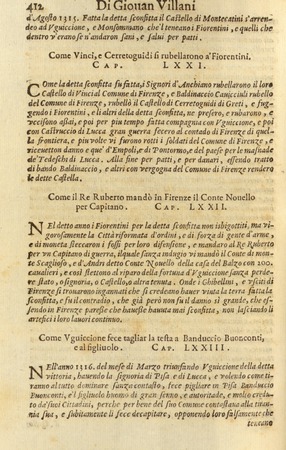 412 Di Giouan Villani
d'Agosto 1315. Fatta la detta sconfitta il Castello di Montecatini s'arren-
deo ad Vguiccione, e Monsommano che'l teneano i Fiorentini, e quelli che
dentro v'erano se n'andaron sani, e salui per patti.
Come Vinci, e Cerretoguidi si rubellarono a'Fiorentini.
CAP. LXXI.
COme la detta sconfitta fu fatta, i Signori d'Anchiano rubellarono il loro
Castello di Vinci al Comune di Firenze, e Baldinaccio Cauicciuli rubello
del Comune di Firenze, rubellò il Castello di Cerretoguidi di Greti, e fug-
gendo i Fiorentini, e li altri della detta sconfitta, ne presero, e rubarono, e
vccisono assai, e poi per piu tempo fatta compagnia con Vguiccione, e poi
con Castruccio di Lucca gran guerra fecero al contado di Firenze di quel-
la frontiera, e piu volte vi furono rotti i soldati del Comune di Firenze, e
riceuetton danno e que' d'Empoli, e di Pontormo, e del paese per le masnade
de'Tedeschi di Lucca. Alla fine per patti, e per danari, essendo tratto
di bando Baldinaccio, e altri con vergogna del Comune di Firenze renderono
le dette Castella.
Come il Re Ruberto mandò in Firenze il Conte Nouello
per Capitano. CAP. LXXII.
NEl detto anno i Fiorentini per la detta sconfitta non isbigottiti, ma vi-
gorosamente la Città riformata d'ordini, e di forza di gente d'arme,
e di moneta steccaron i fossi per loro difensione, e mandaro al Re Ruberto
per vn Capitano di guerra, il quale sanza indugio vi mandò il Conte di mon-
te Scaglioso, e d'Andri detto Conte Nouello della casa del Balzo con 200.
caualieri, e così stettono al riparo della fortuna d'Vguiccione sanza perde-
re stato, o signoria, o Castello, o altra tenuta. Onde i Ghibellini, e vsciti di
Firenze si trouarono ingannati che si credettono hauer vinta la terra fatta la
sconfitta, e fu il contradio, che già però non fu il danno sì grande, che es-
sendo in Firenze paresse che hauesse hauuta mai sconfitta, non lasciando li
artefici i loro lauori continui.
Come Vguiccione fece tagliar la testa a Banduccio Buonconti,
e al figliuolo. CAP. LXXIII.
NEll'anno 1316. del mese di Marzo trionfando Vguiccione della detta
vittoria, hauendo la signoria di Pisa e di Lucca, e volendo come ti-
ranno al tutto dominare sanza contasto, fece pigliare in Pisa Banduccio
Buonconti, e'l figliuolo huomo di gran senno, e autoritade, e molto credu-
to da'suoi Cittadini, perche per bene del suo Comune contastaua alla tiran-
nia sua, e subitamente li fece decapitare, opponendo loro falsamente che
teneano